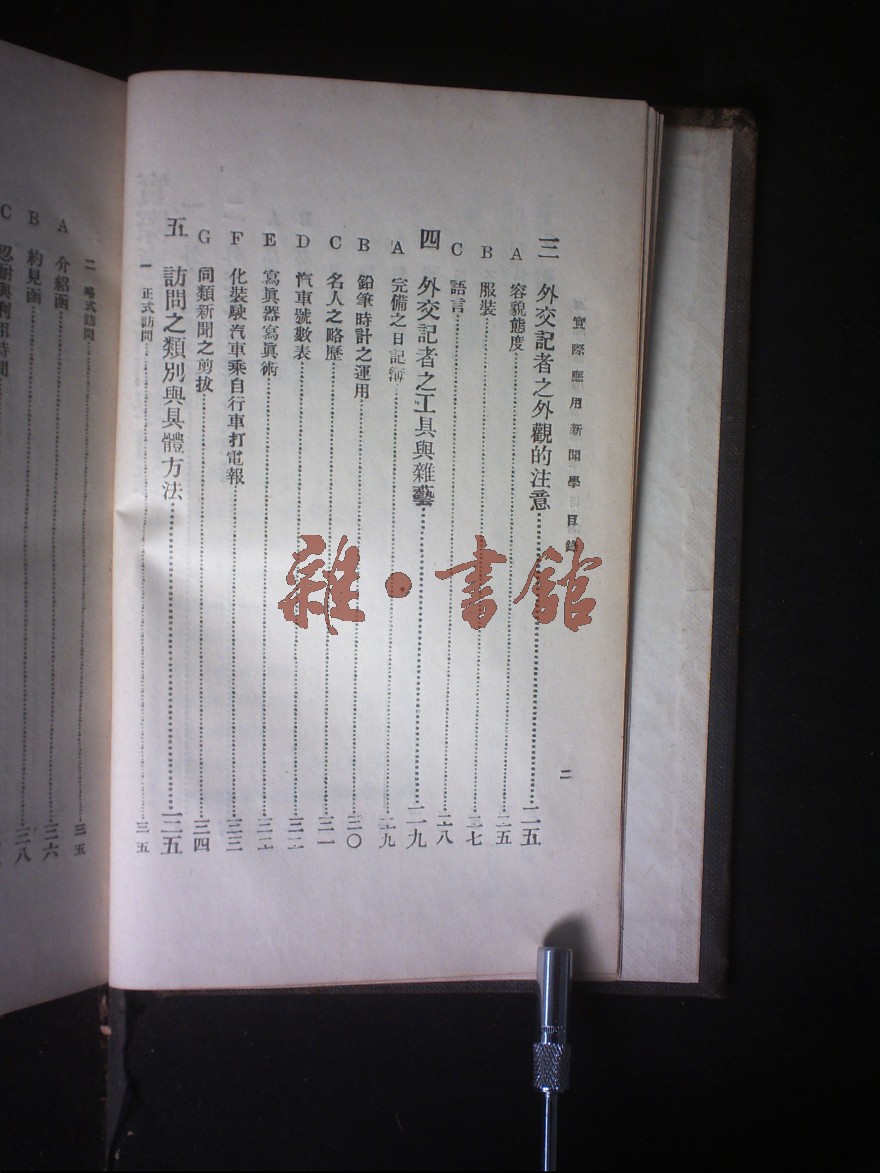 實際應用新聞學 目錄
二
三 外交記者之外觀的注意……二五
A 容貌態度……二五
B 服裝……二七
C 語言……二八
四 外交記者之工具與雜藝……二九
A 完備之日記簿……二九
B 鉛筆時計之運用……三〇
C 名人之略歷……三一
D 汽車號數表……三二
E 寫眞器寫眞術……三二
F 化裝駛汽車乘自行車打電報……三三
G 同類新聞之剪拔……三四
五 訪問之類別與具體方法……三五
一 正式訪問……三五
二 略式訪問……三五
A 介紹函……三六
B 約見函……三八
C 忍耐與利用時間
雜·書館